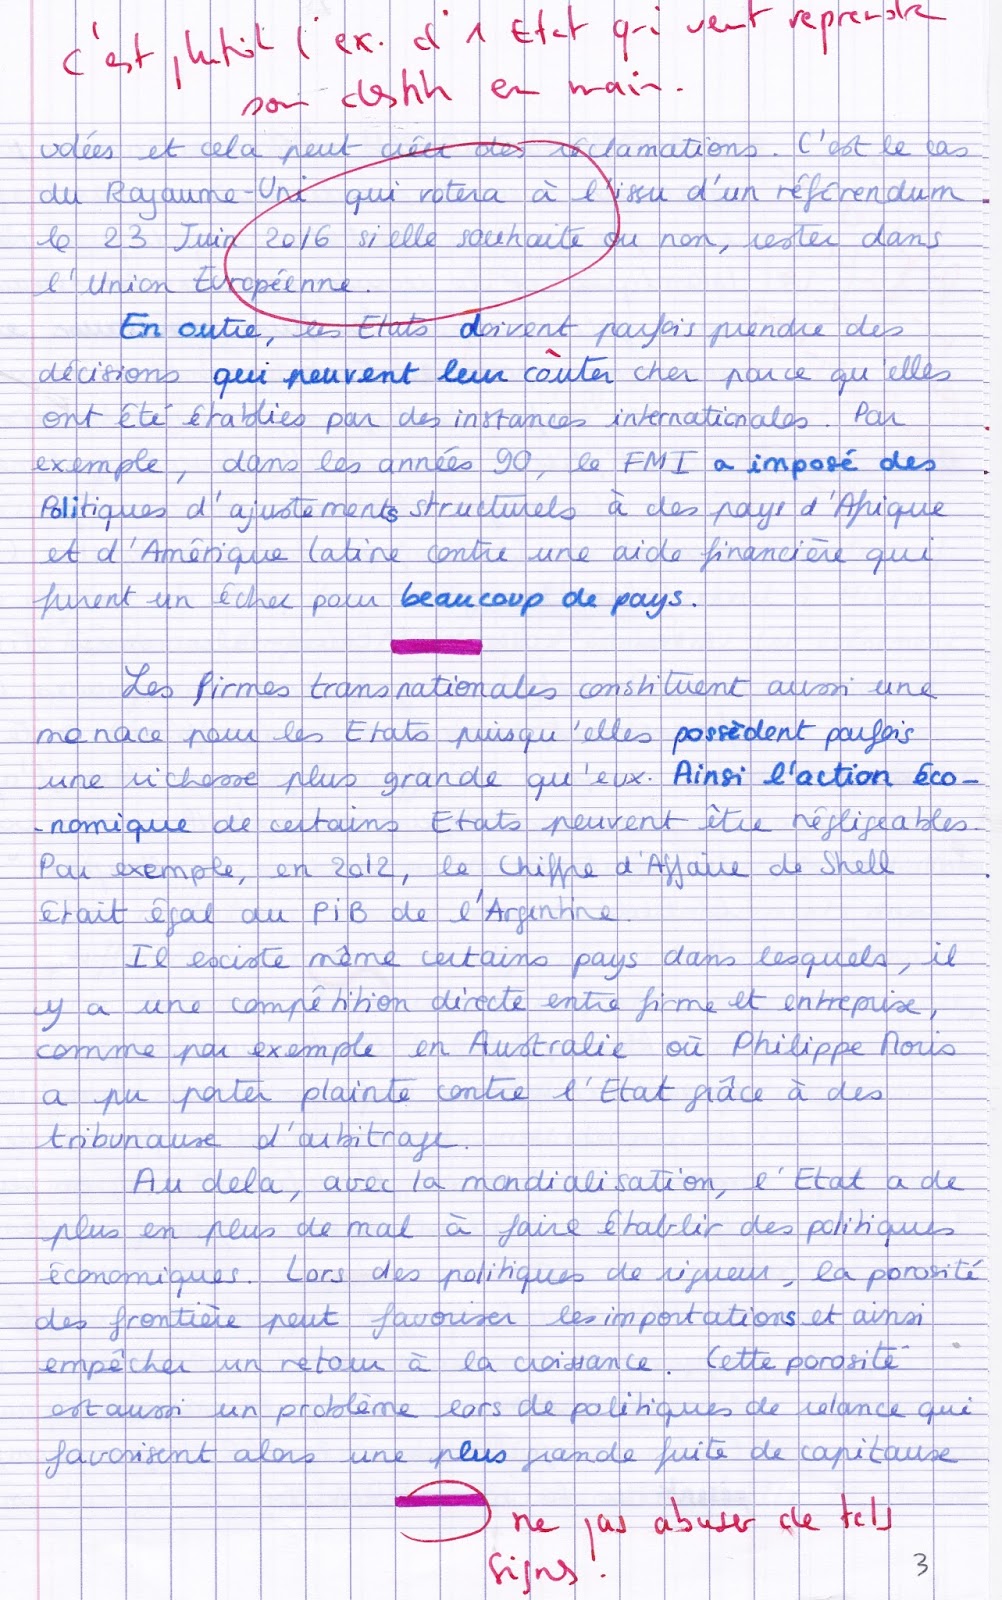 c'est plutôt l'ex. d'1 Etat qui veut reprendre
son destin en main.
udées et cela peut créer des réclamations. C'est le cas
du Royaume-Uni qui votera à l'issu d'un référendum
le 23 Juin 2016 si elle souhaite ou non, rester dans
l'Union Européenne.
En outre, les Etats doivent parfois prendre des
décisions qui peuvent leur coûter cher parce qu'elles
ont été établies par des instances internationales. Par
exemple, dans les années 90, le FMI a imposé des
Politiques d'ajustements structurels à des pays d'Afrique
et d'Amérique latine contre une aide financière qui
furent un échec pour beaucoup de pays.
Les firmes transnationales constituent aussi une
menace pour les Etats puisqu'elles possèdent parfois
une richesse plus grande qu'eux. Ainsi l'action éco-
-nomique de certains Etats peuvent être négligeables.
Par exemple, en 2012, le Chiffre d'Affaire de Shell
était égal au PiB de l'Argentine.
Il existe même certains pays dans lesquels, il
y a une compétition directe entre firme et entreprise,
comme par exemple en Australie où Philippe Moris
a pu porter plainte contre l'Etat grâce à des
tribunaux d'arbitrage.
Au dela, avec la mondialisation, l'Etat a de
plus en plus de mal à faire établir des politiques
économiques. Lors des politiques de rigueur, la porosité
des frontière peut favoriser les importations et ainsi
empêcher un retour à la croissance. Cette porosité
est aussi un problème lors de politiques de relance qui
favorisent alors une plus grande fuite de capitaux
ne pas abuser de tels
signs !
3